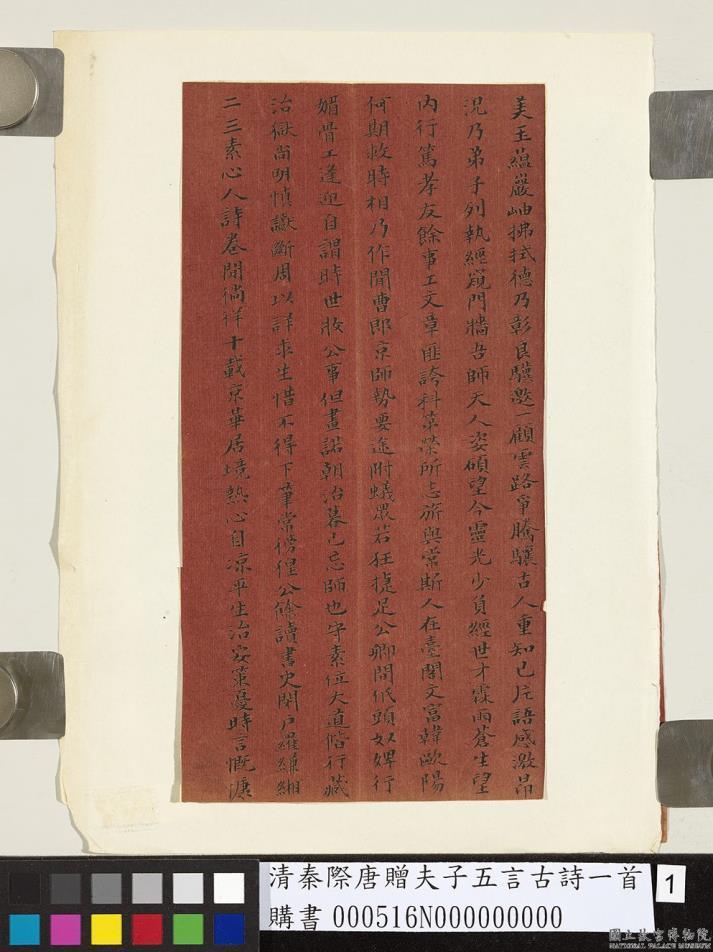 美玉蘊巖岫拂拭德乃彰良驥邀一顧雲路爭騰驤古人重知己片語感激昂
況乃弟子列執經窺門牆吾師天人姿碩望今靈光少負經世才霖雨蒼生望
內行篤孝友餘事工文章匪誇科第榮所志旂與常斯人在臺閣文富韓歐陽
何期救時相乃作閒曹郎京師勢要途附蟻眾若狂捷足公卿間低頭奴婢行
媚骨工逢迎自謂時世妝公事但畫諾朝治暮已忘師也守素位大道偕行藏
治獄尚明慎讞斷周以詳求生惜不得下筆常徬徨公餘讀書史閉戶羅縑緗
二三素心人詩卷閒徜徉十載京華居境熱心自涼平生治安策憂時言慨慷
清秦際唐贈夫子五言古詩一首
購書 000516N000000000
1
國立故宮博物院
NATIONAL PALACE MUSEUM